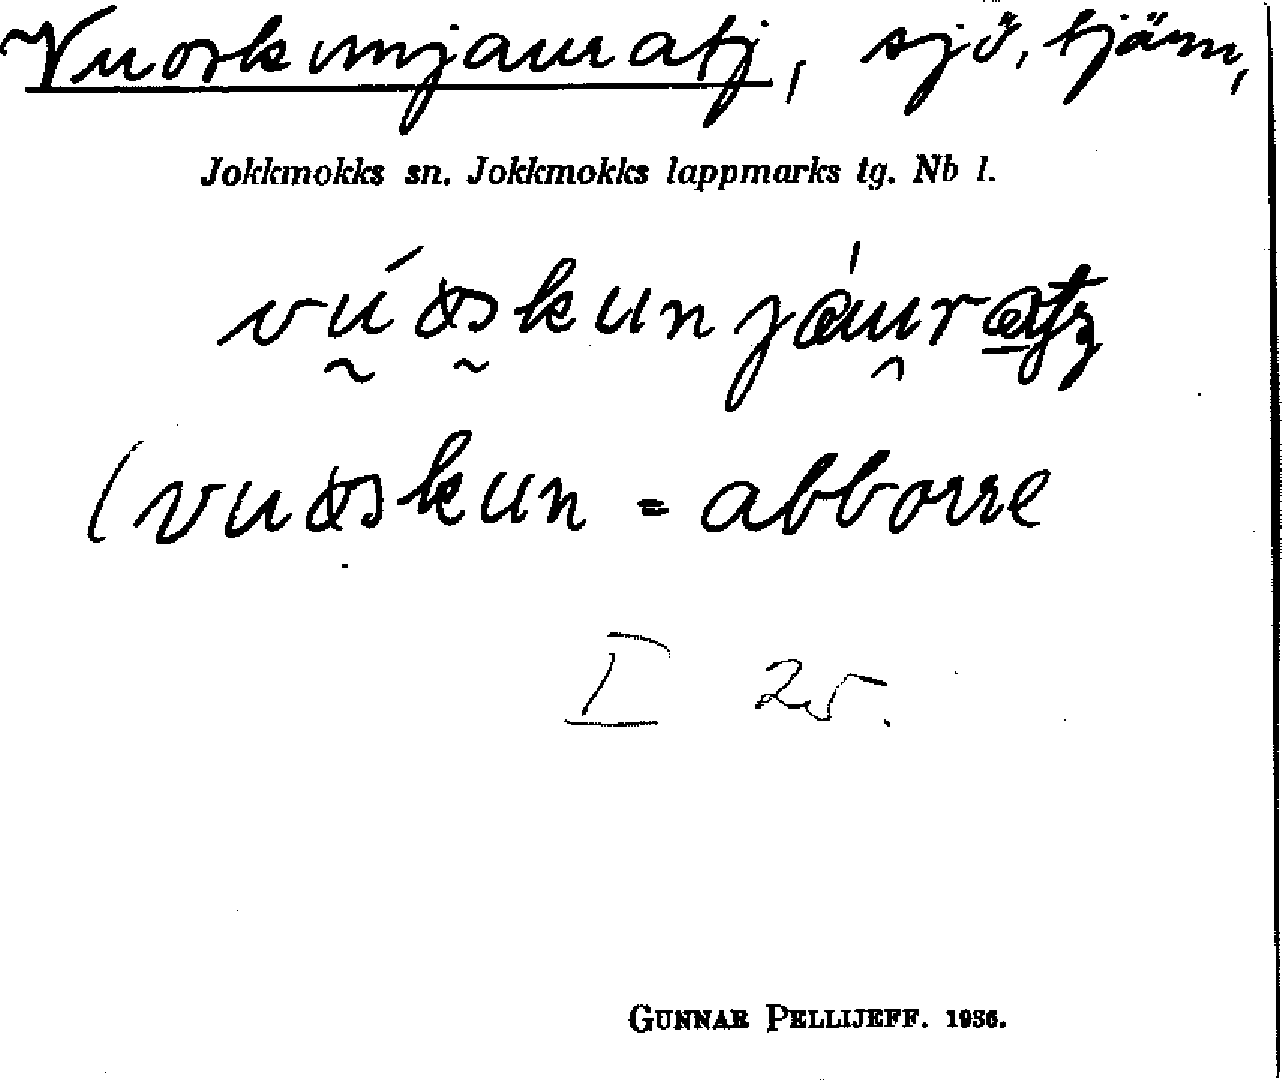 Vuoskunjauratj, sjö, tjärn,
Jokkmokks sn. Jokkmokks lappmarks tg. Nb l.
(vuoskun = abborre
I 25.
GUNNAR PELLIJEFF. 1936.